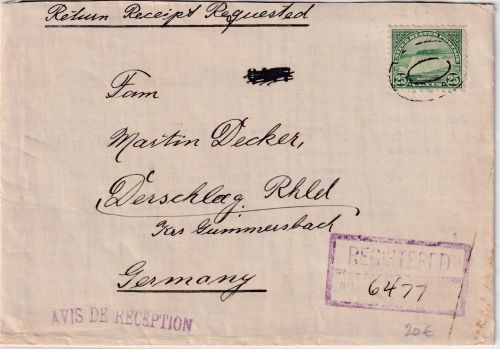 Return Receipt Requested
UNITED STATES POSTAGE
25 25
Fam
Martin Decker,
Derschlag. Rhld
Krs Gummersbach
Germany
REGISTERED
NO. 6477
AVIS DE RECEPTION
20€